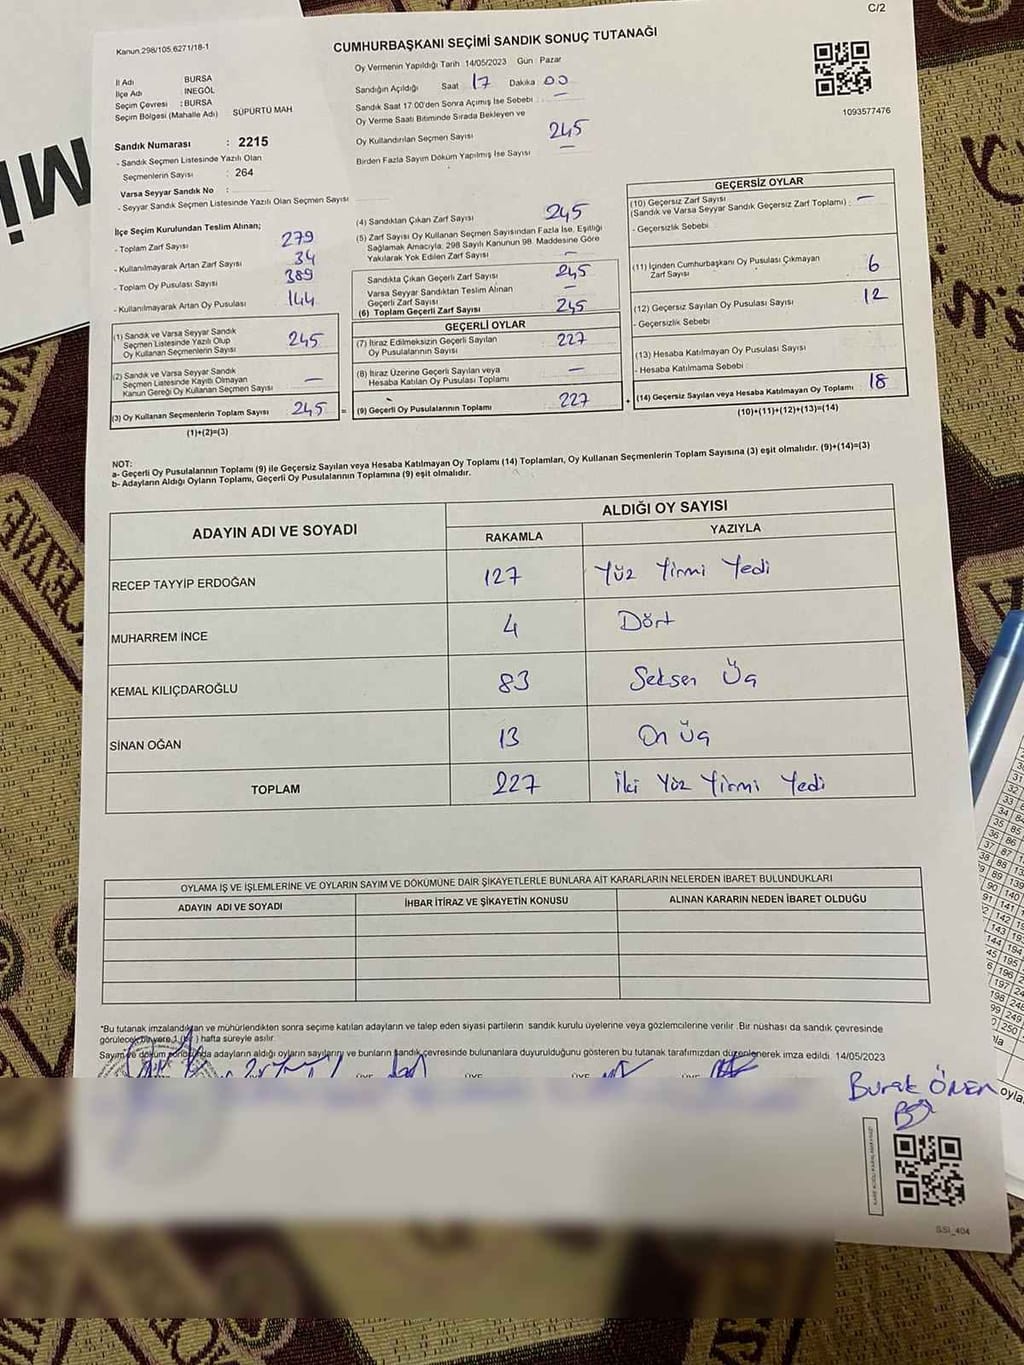 C/2
Kanun.298/105.6271/18-1
CUMHURBAŞKANI SEÇİMİ SANDIK SONUÇ TUTANAĞI
İl Adı BURSA
İlçe Adı İNEGÖL
Seçim Çevresi : BURSA
Seçim Bölgesi (Mahalle Adı) SÜPÜRTÜ MAH
Sandık Numarası : 2215
- Sandık Seçmen Listesinde Yazılı Olan
Seçmenlerin Sayısı : 264
Varsa Seyyar Sandık No :
- Seyyar Sandık Seçmen Listesinde Yazılı Olan Seçmen Sayısı
Oy Vermenin Yapıldığı Tarih 14/05/2023 Gün Pazar
Sandığın Açıldığı Saat 17 Dakika 00
Sandık Saat 17:00'den Sonra Açımış İse Sebebi : —
Oy Verme Saati Bitiminde Sırada Bekleyen ve
Oy Kullandırılan Seçmen Sayısı 245
Birden Fazla Sayım Döküm Yapılmış İse Sayısı —
1093577476
İlçe Seçim Kurulundan Teslim Alınan;
- Toplam Zarf Sayısı 279
- Kullanılmayarak Artan Zarf Sayısı 34
- Toplam Oy Pusulası Sayısı 389
- Kullanılmayarak Artan Oy Pusulası 144
(1) Sandık ve Varsa Seyyar Sandık
Seçmen Listesinde Yazılı Olup
Oy Kullanan Seçmenlerin Sayısı 245
(2) Sandık ve Varsa Seyyar Sandık
Seçmen Listesinde Kayıtlı Olmayan
Kanun Gereği Oy Kullanan Seçmen Sayısı —
(3) Oy Kullanan Seçmenlerin Toplam Sayısı 245 =
(1)+(2)=(3)
(4) Sandıktan Çıkan Zarf Sayısı 245
(5) Zarf Sayısı Oy Kullanan Seçmen Sayısından Fazla İse, Eşitliği
Sağlamak Amacıyla, 298 Sayılı Kanunun 98. Maddesine Göre
Yakılarak Yok Edilen Zarf Sayısı —
Sandıkta Çıkan Geçerli Zarf Sayısı 245
Varsa Seyyar Sandıktan Teslim Alınan
Geçerli Zarf Sayısı —
(6) Toplam Geçerli Zarf Sayısı 245
GEÇERLİ OYLAR
(7) İtiraz Edilmeksizin Geçerli Sayılan
Oy Pusulalarının Sayısı 227
(8) İtiraz Üzerine Geçerli Sayılan veya
Hesaba Katılan Oy Pusulası Toplamı —
(9) Geçerli Oy Pusulalarının Toplamı 227 +
GEÇERSİZ OYLAR
(10) Geçersiz Zarf Sayısı
(Sandık ve Varsa Seyyar Sandık Geçersiz Zarf Toplamı) : —
- Geçersizlik Sebebi
(11) İçinden Cumhurbaşkanı Oy Pusulası Çıkmayan
Zarf Sayısı 6
(12) Geçersiz Sayılan Oy Pusulası Sayısı 12
- Geçersizlik Sebebi
(13) Hesaba Katılmayan Oy Pusulası Sayısı
- Hesaba Katılmama Sebebi
(14) Geçersiz Sayılan veya Hesaba Katılmayan Oy Toplamı 18
(10)+(11)+(12)+(13)=(14)
NOT:
a- Geçerli Oy Pusulalarının Toplamı (9) ile Geçersiz Sayılan veya Hesaba Katılmayan Oy Toplamı (14) Toplamları, Oy Kullanan Seçmenlerin Toplam Sayısına (3) eşit olmalıdır. (9)+(14)=(3)
b- Adayların Aldığı Oyların Toplamı, Geçerli Oy Pusulalarının Toplamına (9) eşit olmalıdır.
ADAYIN ADI VE SOYADI ALDIĞI OY SAYISI
RAKAMLA YAZIYLA
RECEP TAYYİP ERDOĞAN 127 Yüz Yirmi Yedi
MUHARREM İNCE 4 Dört
KEMAL KILIÇDAROĞLU 83 Seksen Üç
SİNAN OĞAN 13 On Üç
TOPLAM 227 İki Yüz Yirmi Yedi
OYLAMA İŞ VE İŞLEMLERİNE VE OYLARIN SAYIM VE DÖKÜMÜNE DAİR ŞİKAYETLERLE BUNLARA AİT KARARLARIN NELERDEN İBARET BULUNDUKLARI
ADAYIN ADI VE SOYADI İHBAR İTİRAZ VE ŞİKAYETİN KONUSU ALINAN KARARIN NEDEN İBARET OLDUĞU
*Bu tutanak imzalandıktan ve mühürlendikten sonra seçime katılan adayların ve talep eden siyasi partilerin sandık kurulu üyelerine veya gözlemcilerine verilir .Bir nüshası da sandık çevresinde
görülecek bir yere 1 (bir) hafta süreyle asılır.
Sayım ve döküm sonunda adayların aldığı oyların sayılarını ve bunların sandık çevresinde bulunanlara duyurulduğunu gösteren bu tutanak tarafımızdan düzenlenerek imza edildi. 14/05/2023
Burak ÖNEN
SSI_404